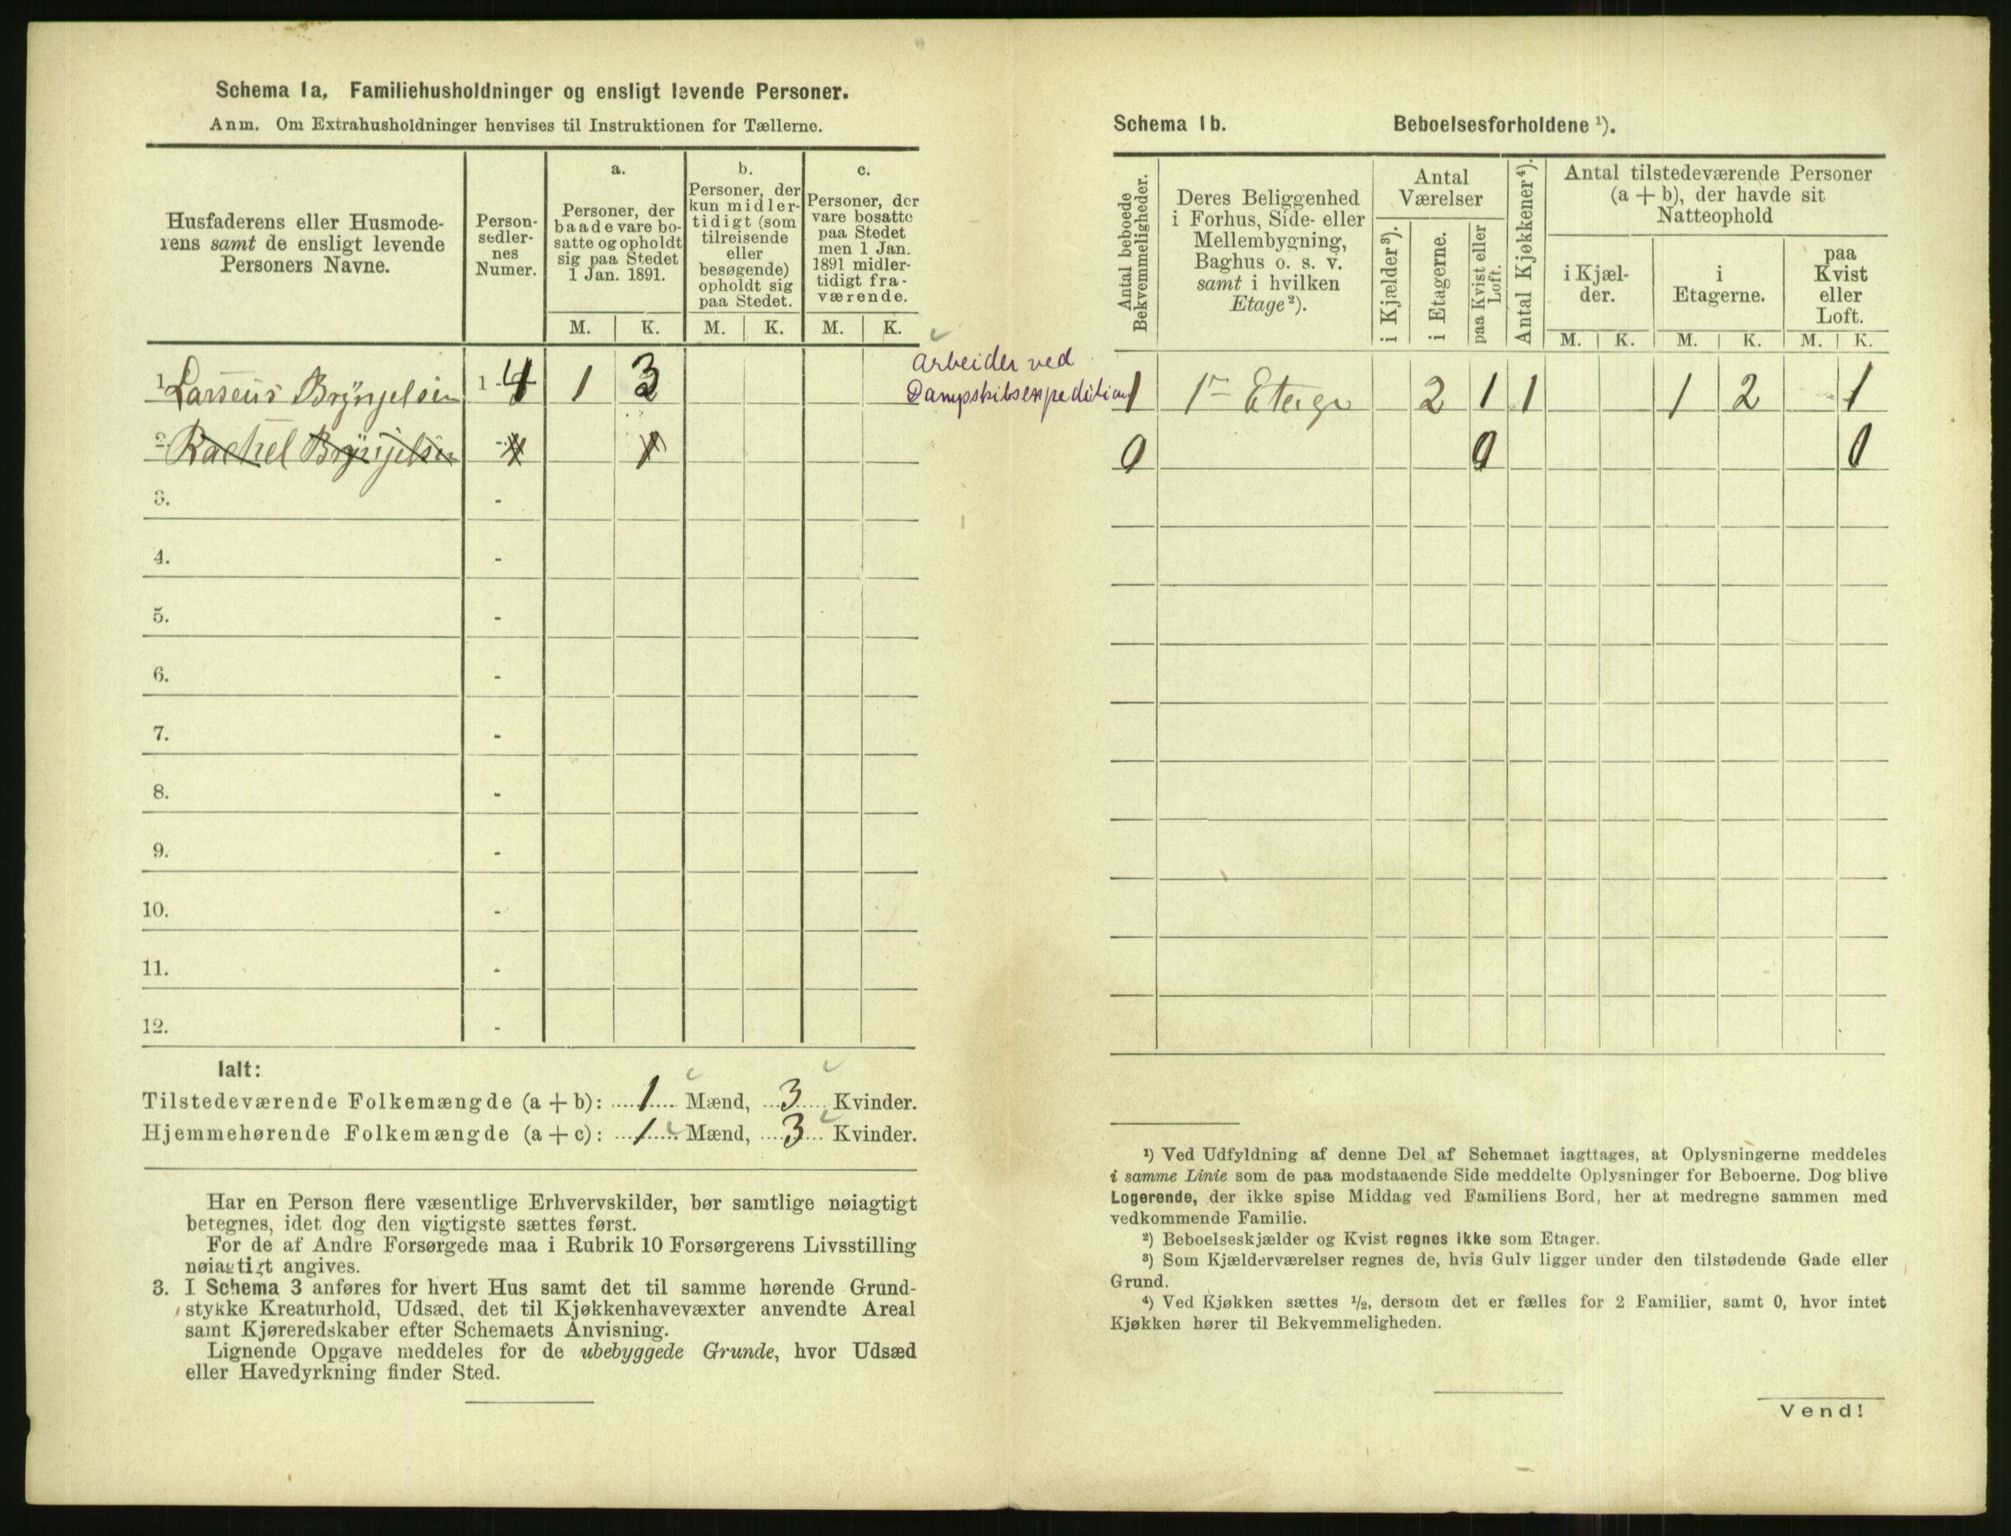 Schema 1a, Familiehusholdninger og ensligt levende Personer.
Anm. Om Extrahusholdninger henvises til Instruktionen for Tællerne.
Husfaderens eller Husmode-
rens samt de ensligt levende
Personers Navne.
Person-
sedler-
nes
Numer.
a.
Personer, der
baade vare bo-
satte og opholdt
sig paa Stedet
1 Jan. 1891.
b.
Personer, der
kun midler-
tidigt (som
tilreisende
eller
besøgende)
opholdt sig
paa Stedet.
c.
Personer, der
vare bosatte
paa Stedet
men 1 Jan.
1891 midler-
tidigt fra-
værende.
M. K. M. K. M. K.
1 Larseus Brÿnjelsen 1 - 4 1 3
Arbeider ved
Dampskibsexpedition
2. Rachel Brÿnjelsen - 1
3. -
4. -
5. -
6. -
7. -
8. -
9. -
10. -
11. -
12. -
Ialt:
Tilstedeværende Folkemængde (a + b): 1 Mænd, 3 Kvinder.
Hjemmehørende Folkemængde (a + c): 1 Mænd, 3 Kvinder.
Har en Person flere væsentlige Erhvervskilder, bør samtlige nøiagtigt
betegnes, idet dog den vigtigste sættes først.
For de af Andre Forsørgede maa i Rubrik 10 Forsørgerens Livsstilling
nøiagtigt angives.
3. I Schema 3 anføres for hvert Hus samt det til samme hørende Grund-
stykke Kreaturhold, Udsæd, det til Kjøkkenhavevæxter anvendte Areal
samt Kjøreredskaber efter Schemaets Anvisning.
Lignende Opgave meddeles for de ubebyggede Grunde, hvor Udsæd
eller Havedyrkning finder Sted.
Schema 1b. Beboelsesforholdene ¹).
Antal beboede
Bekvemmeligheder.
Deres Beliggenhed
i Forhus, Side- eller
Mellembygning,
Baghus o. s. v.
samt i hvilken
Etage²).
Antal
Værelser
i Kjælder³).
i Etagerne.
paa Kvist eller
Loft.
Antal Kjøkkener⁴).
Antal tilstedeværende Personer
(a + b), der havde sit
Natteophold
i Kjæl-
der.
i
Etagerne.
paa
Kvist
eller
Loft.
M. K. M. K. M. K.
1 1ᵐ Etage 2 1 1 1 2 1
0 0 0
¹) Ved Udfyldning af denne Del af Schemaet iagttages, at Oplysningerne meddeles
i samme Linie som de paa modstaaende Side meddelte Oplysninger for Beboerne. Dog blive
Logerende, der ikke spise Middag ved Familiens Bord, her at medregne sammen med
vedkommende Familie.
²) Beboelseskjælder og Kvist regnes ikke som Etager.
³) Som Kjælderværelser regnes de, hvis Gulv ligger under den tilstødende Gade eller
Grund.
⁴) Ved Kjøkken sættes ½, dersom det er fælles for 2 Familier, samt 0, hvor intet
Kjøkken hører til Bekvemmeligheden.
Vend!